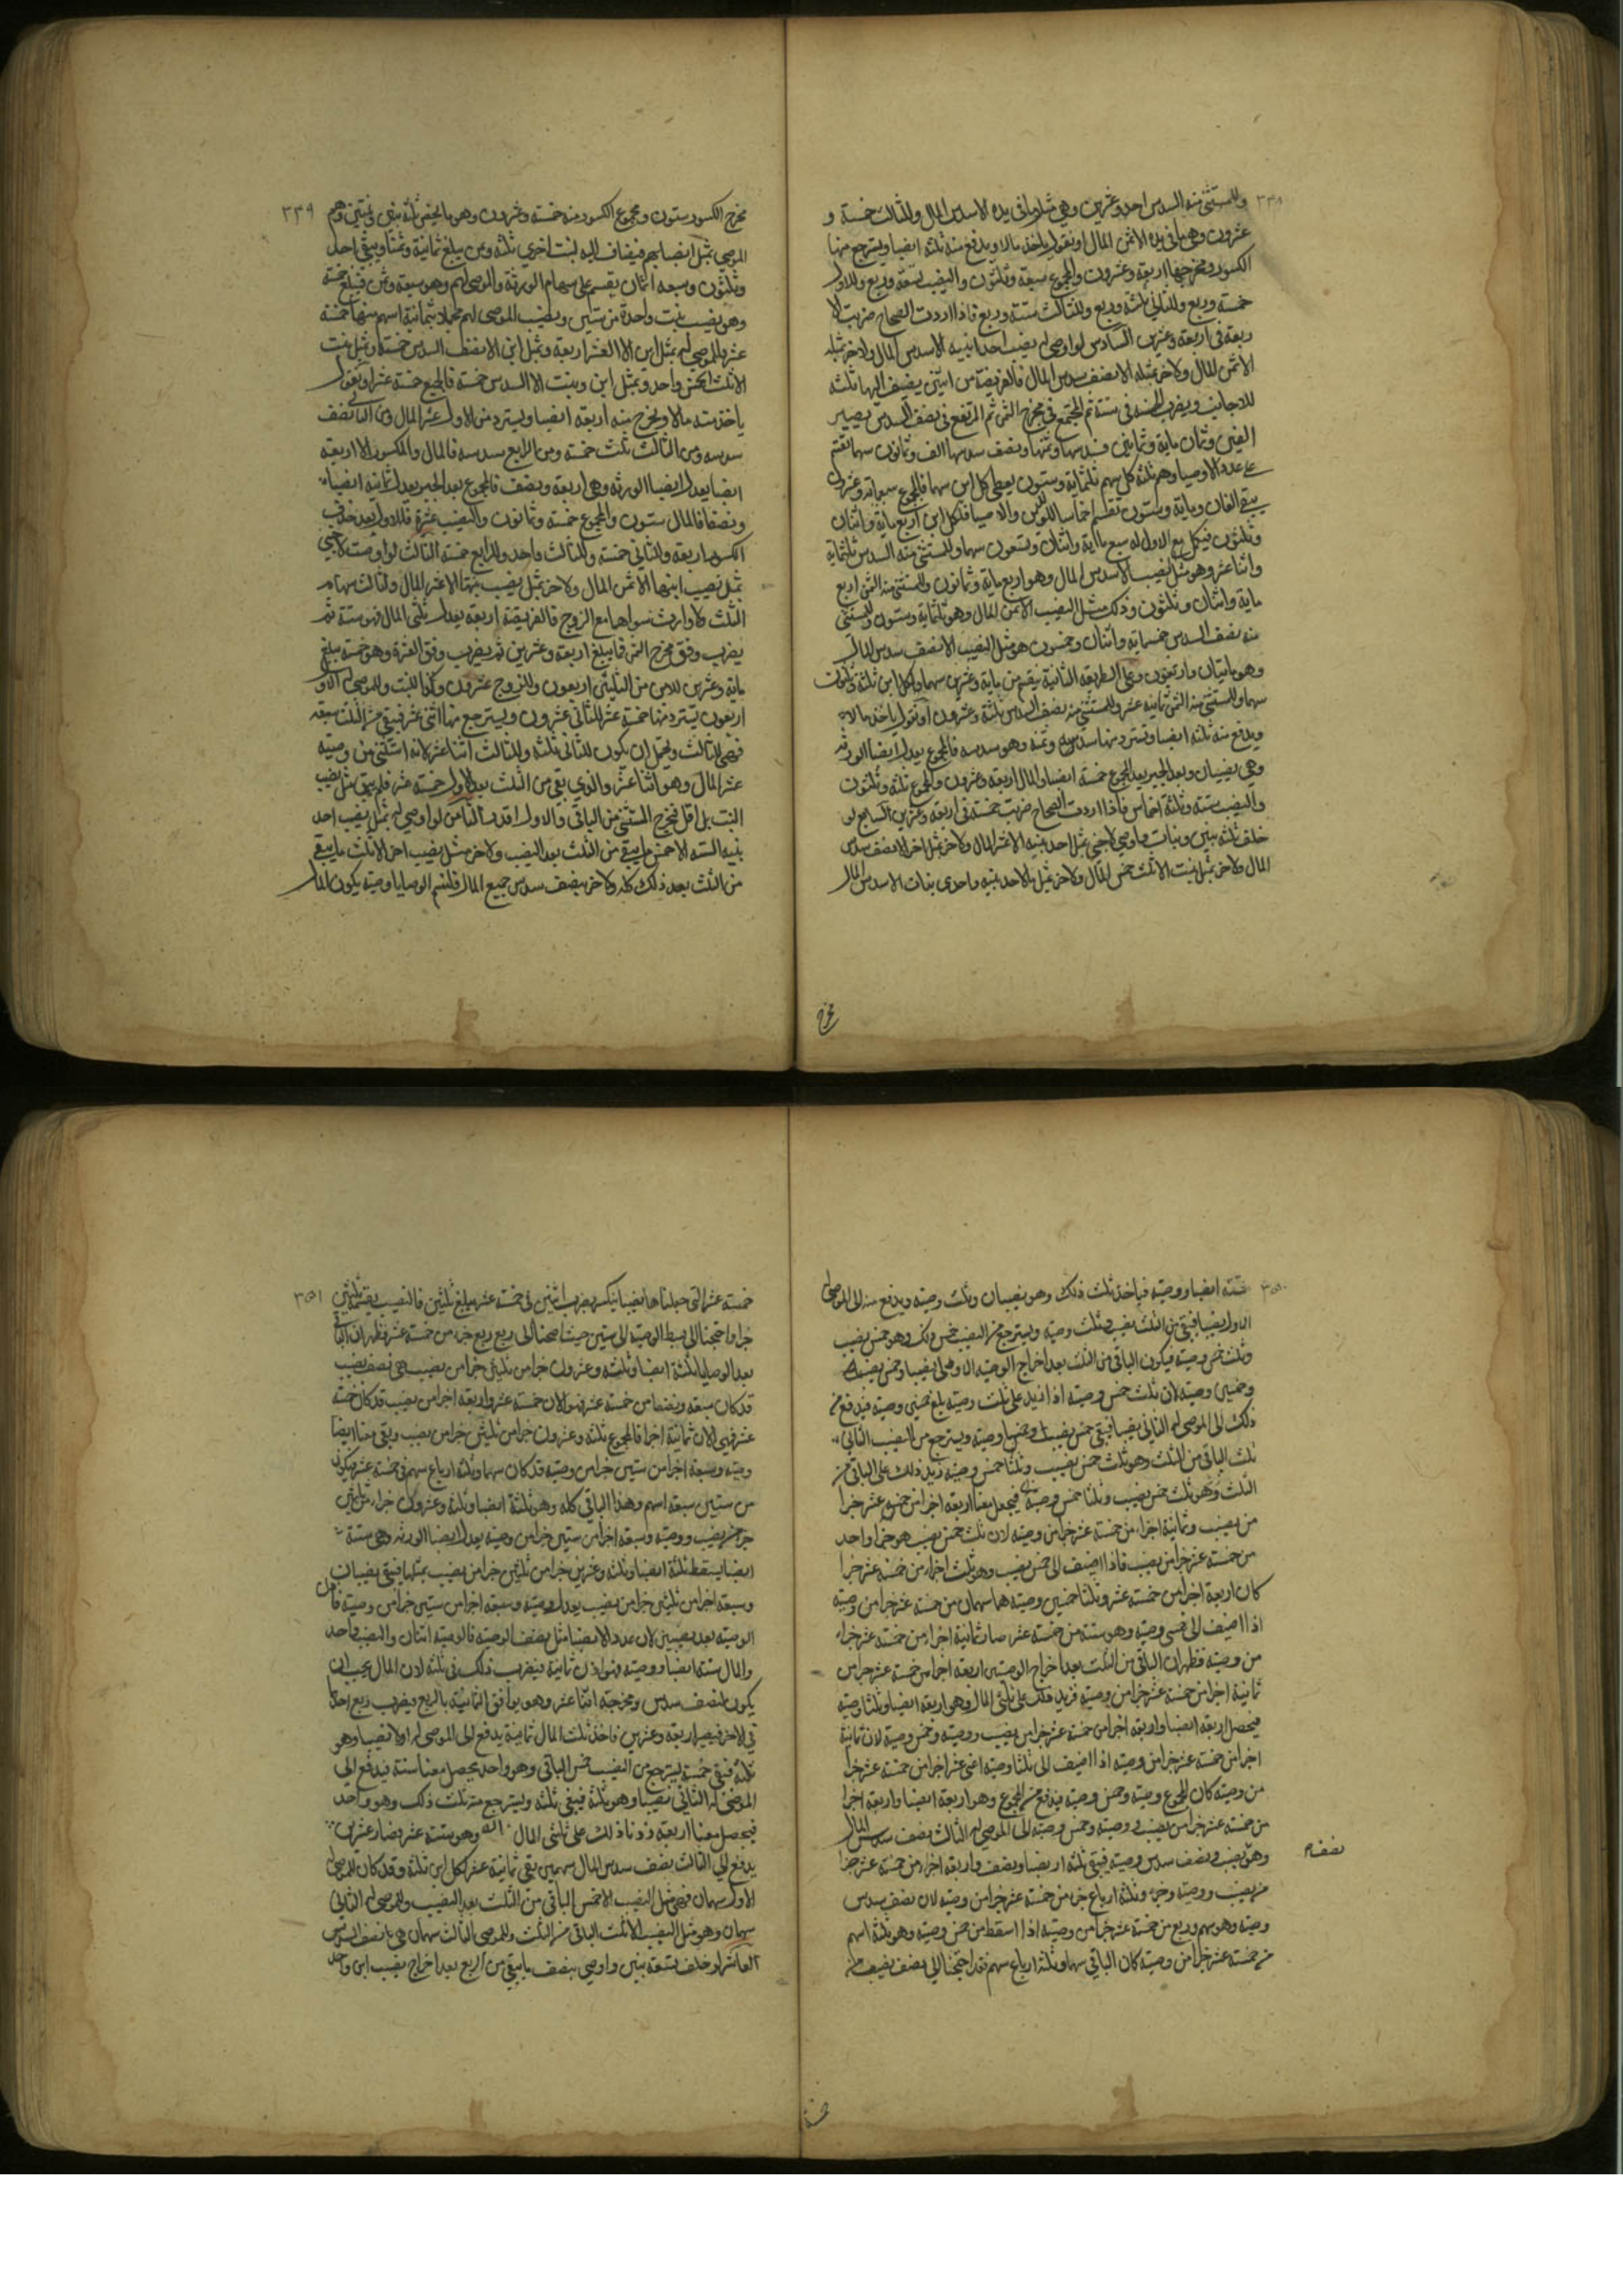 ٣٣٨
وللمستثنى منه السدس احد وعشرين وهي مثل ما في يده الا سدس المال وللثالث خمسة و
عشرون وهي ما في يده الا ثمن المال او نقول يأخذ مالا ويدفع منه ثلثة انصبا ويسترجع منها
الكسور ومخرجها اربعة وعشرون والمجموع سبعة وثلثون والنصيب تسعة وربع وللاول
خمسة وربع وللثاني ثلثة وربع وللثالث ستة وربع فاذا اردت الصحاح ضربت الا
ربعة في اربعة وعشرين السادس لو اوصى له بنصيب احد ابنيه الا سدس المال ولاخر بمثله
الا ثمن المال ولاخر بمثله الا نصف سدس المال فالفريضة من اثنين يضيف اليها ثلثة
للاجانب ويضرب الخمسة في ستة ثم المجتمع في مخرج الثمن ثم المرتفع في نصف السدس يصير
الفين وثمان ماية وثمانين فسدسها وثمنها ونصف سدسها الف وثمانون سهما يقسم
على عدد الاوصياء وهم ثلثة كل سهم ثلثماية وستون يعطى كل ابن سهما فالمجموع سبعماية وعشرون
يبقى الفان وماية وستون تقسم اخماسا للورثة والاوصيا فلكل ابن اربع ماية واثنان
وثلثون فيكمل مع الاول له سبع ماية واثنان وتسعون سهما وللمستثنى منه السدس ثلثماية
واثنا عشر وهو مثل النصيب الا سدس المال وهو اربع ماية وثمانون وللمستثنى منه الثمن اربع
ماية واثنان وثلثون وذلك مثل النصيب الا ثمن المال وهو ثلثماية وستون وللمستثنى
منه نصف السدس خمسماية واثنان وخمسون هو مثل النصيب الا نصف سدس المال
وهو مايتان واربعون وعلى الطريقة الثانية يقسم من ماية وعشرين سهما ولكل ابن ثلثة وثلثون
سهما وللمستثنى منه الثمن ثمانية عشر وللمستثنى منه نصف السدس ثلثة وعشرون او نقول ياخذ مالا
ويدفع منه ثلثة انصبا ويسترد منها سدسه وثمنه وهو سدسه فالمجموع يعدل انصبا الورثة
وهي نصيبان وبعد الجبر يعدل المجموع خمسة انصبا والمال اربعة وعشرون والمجموع ثلثة وثلثون
والنصيب ستة وثلثة اخماس فاذا اردت الصحاح ضربت خمسة في اربعة وعشرين السابع لو
خلف ثلثة بنين وبنات واوصى لاجنبي بمثل احد بنيه الا عشر المال ولاخر بمثل اخر الا نصف سدس
المال ولاخر بمثل بنت الا ثلث خمس المال ولاخر بمثل ما لاحد بنيه واحدى بنات الا سدس المال
مخرج
٣٣٩
مخرج الكسور ستون ومجموع الكسور منه خمسة وعشرون وهو ما يخص ثلثة بنين وبنتين وهم
الموصى بمثل انصبايهم فيضاف اليه لبنت اخرى ثلثة وثمن يبلغ ثمانية وثمنا ويبقى احد
وثلثون وسبعة اثمان يقسم على سهام الورثة والموصى لهم وهو سبعة وثمن فيبلغ خمسة
وهو نصيب بنت واحدة من ستين ونصيب الموصى لهم محملا بثمانية اسهم منها خمسة
عشر وللموصى له بمثل ابن الا العشر اربعة وبمثل ابن الا نصف السدس خمسة وبمثل بنت
الا ثلث الخمس واحد وبمثل ابن وبنت الا السدس خمسة فالجميع خمسة عشر او نقول
ياخذ ستة مالا ويخرج منه اربعة انصبا ويسترد من الاول عشر المال ومن الثاني نصف
سدسه ومن الثالث ثلث خمسه ومن الرابع سدسه فالمال والمكسور الا اربعة
انصبا يعدل انصبا الورثة وهي اربعة ونصف فالمجموع بعد الجبر يعدل ثمانية انصباء
ونصفا فالمال ستون والمجموع خمسة وثمانون والنصيب عشرة فللاول بعد حذف
الكسور اربعة وللثاني خمسة وللثالث واحد وللرابع خمسة الثالث لو اوصت لاجنبي
بمثل نصيب ابنها الا ثمن المال ولاخر بمثل نصيب بنتها الا عشر المال ولثالث بتمام
الثلث ولا وارث سواهما مع الزوج فالفريضة اربعة يعدل ثلثي المال فهو ستة ثم
يضرب وفق مخرج الثمن فيبلغ اربعة وعشرين ثم يضرب وفق العشرة وهو خمسة يبلغ
ماية وعشرين للابن من الثلثين اربعون وللزوج عشرون وكذا للبنت وللموصى له الاول
اربعون يسترد منها خمسة عشر للثاني عشرون ويسترجع منها اثنى عشر فيبقى من الثلث سبعة
فهي للثالث ويحتمل ان يكون للثاني ثلثة وللثالث اثنا عشر لانه استثنى من وصيته
عشر المال وهو اثنا عشر والذي بقي من الثلث بعد الاول خمسة عشر فلم يبق مثل نصيب
البنت بل اقل فيخرج المستثنى من الباقي والاول اقعد الثامن لو اوصى له بمثل نصيب احد
بنيه الستة الا خمس ما يبقى من الثلث بعد النصيب ولاخر مثل نصيب اخر الا ثلث ما يبقى
من الثلث بعد ذلك كله ولاخر بنصف سدس جميع المال فلنسم الوصايا وصية يكون المال
٣٥٠
ستة انصبا ووصية فياخذ ثلث ذلك وهو نصيبان وثلث وصية ويدفع منه الى الموصى له
الاول نصيبا فيبقى من الثلث نصيب وثلث وصية ويسترجع من النصيب خمس ذلك وهو خمس نصيب
وثلث خمس وصية فيكون الباقي من الثلث بعد اخراج الوصية الاولى نصيبا وخمس نصيب
وخمسي وصية لان ثلث خمس وصية اذا زيد على ثلث وصية بلغ خمسي وصية فيدفع من
ذلك الى الموصى له الثاني نصيبا فيبقى خمس نصيب وخمسا وصية ويسترجع من النصيب الثاني
ثلث الباقي من الثلث وهو ثلث خمس نصيب وثلثا خمس وصية زيد ذلك على الباقي من
الثلث وهو ثلث خمس نصيب وثلثا خمس وصية فيحصل معنا اربعة اجزا من خمسة عشر جزا
من نصيب وثمانية اجزاء من خمسة عشر جزا من وصية لان ثلث خمس نصيب هو جزا واحد
من خمسة عشر جزا من نصيب فاذا اضيف الى خمس نصيب وهو ثلث اجزاء من خمسة عشر جزا
كان اربعة اجزا من خمسة عشر وثلثا خمسين وصية هما سهمان من خمسة عشر جزا من وصية
اذا اضيف الى خمسي وصية وهو ستة من خمسة عشر صار ثمانية اجزا من خمسة عشر جزاء
من وصية فظهر ان الباقي من الثلث بعد اخراج الوصيتين اربعة اجزا من خمسة عشر جزا من
ثمانية اجزا من خمسة عشر جزا من وصية فزيد ذلك على ثلثي المال وهو اربعة انصبا وثلثا وصية
فيحصل اربعة انصبا واربعة اجزا من خمسة عشر جزا من نصيب ووصية وخمس وصية لان ثمانية
اجزا من خمسة عشر جزا من وصية اذا اضيف الى ثلثا وصية اعني عشر اجزا من خمسة عشر جزا
من وصية كان المجموع وصية وخمس وصية فيدفع من المجموع وهو اربعة انصبا واربعة اجزا
من خمسة عشر جزا من نصيب ووصية وخمس وصية الى الموصى له الثالث نصف سدس المال
وهو نصيب ونصف سدس وصية فيبقى ثلثة انصبا ونصف واربعة اجزاء من خمسة عشر جزا
نصفه
من نصيب ووصية وجزء وثلثة ارباع جزء من خمسة عشر جزا من وصية لان نصف سدس
وصية وهو سهم وربع من خمسة عشر جزا من وصية اذا اسقط من خمس وصية وهو ثلثة اسهم
من خمسة عشر جزا من وصية كان الباقي سهما وثلثة ارباع سهم فقد احتجنا الى نصف نصيف
خمسة
٣٥١
خمسة عشر التي جعلناها نصيبا ينكسر يضرب اثنين في خمسة عشر يبلغ ثلثين فالنصيب يقسم ثلثين
جزا واحتجنا الى بسط الوصية الى ستين حيث احتجنا الى ربع ربع جزء من خمسة عشر فظهر ان الباقي
بعد الوصايا ثلثة انصبا وثلثة وعشرون جزا من ثلثين جزا من نصيب هي نصف نصيب
قد كان سبعة ونصفا من خمسة عشر فهو الان خمسة عشر واربعة اجزا من نصيب قد كان خمسة
عشر فهي الان ثمانية اجزا فالمجموع ثلثة وعشرون جزا من ثلثين جزا من نصيب وبقي معنا ايضا
وصية وسبعة اجزا من ستين جزا من وصية قد كان سهما وثلثة ارباع سهم في خمسة عشر فيكون
من ستين سبعة اسهم وهذا الباقي كله وهو ثلثة انصبا وثلثة وعشرون جزاء من ثلثين
جزا من نصيب ووصية وسبعة اجزا من ستين جزا من وصية يعدل انصبا الورثة وهي ستة
انصبا يسقط ثلثة انصبا وثلثة وعشرين جزا من ثلثين جزا من نصيب بمثلها فيبقى نصيبان
وسبعة اجزا من ثلثين جزا من نصيب يعدل وصية وسبعة اجزا من ستين جزا من وصية فاذن
الوصية يعد نصيبين لان عدد الانصبا مثل نصف الوصية فالوصية اثنان والنصيب واحد
والمال ستة انصبا ووصية فهو اذن ثمانية فيضرب ذلك في ثلثة لان المال يجب ان
يكون له نصف سدس ومخرجه اثنا عشر وهو يوافق الثمانية بالربع فيضرب ربع احدهما
في الاخر فيصير اربعة وعشرين فاخذ ثلث المال ثمانية يدفع الى الموصى له اولا نصيبا وهو
ثلثة فيبقى خمسة يسترجع من النصيب خمس الباقي وهو واحد يحصل معنا ستة فيدفع الى
الموصى له الثاني نصيبا وهو ثلثة فيبقى ثلثة ويسترجع منه ثلث ذلك وهو واحد
فيحصل معنا اربعة زدنا ذلك على ثلثي المال وهو ستة عشر فصار عشرين
يدفع الى الثالث نصف سدس المال سهمين بقي ثمانية عشر لكل ابن ثلثة وقد كان للموصى له
الاول سهمان فهي مثل النصيب الا خمس الباقي من الثلث بعد النصيب وللموصى له الثاني
سهمان وهو مثل النصيب الا ثلث الباقي من الثلث وللموصى الثالث سهمان هي نصف السدس
العاشر لو خلف تسعة بنين واوصى بنصف ما يبقى من الربع بعد اخراج نصيب ابن واحد